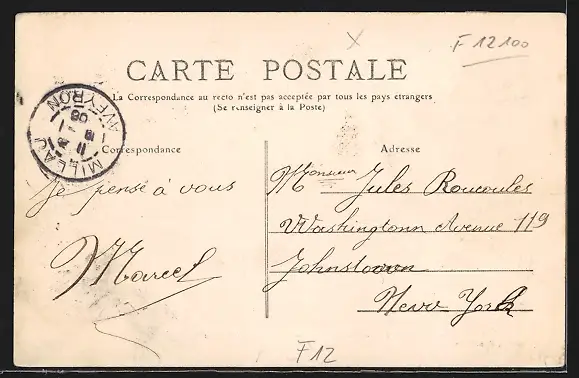 F 12100
CARTE POSTALE
La Correspondance au recto n'est pas acceptée par tous les pays etrangers
(Se renseigner à la Poste)
MILLAU
AVEYRON
08
Correspondance
Adresse
Je pense à vous
Marcel
Monsieur Jules Roucoules
Washingtonn Avenue 119
Johnstown
New York
F12